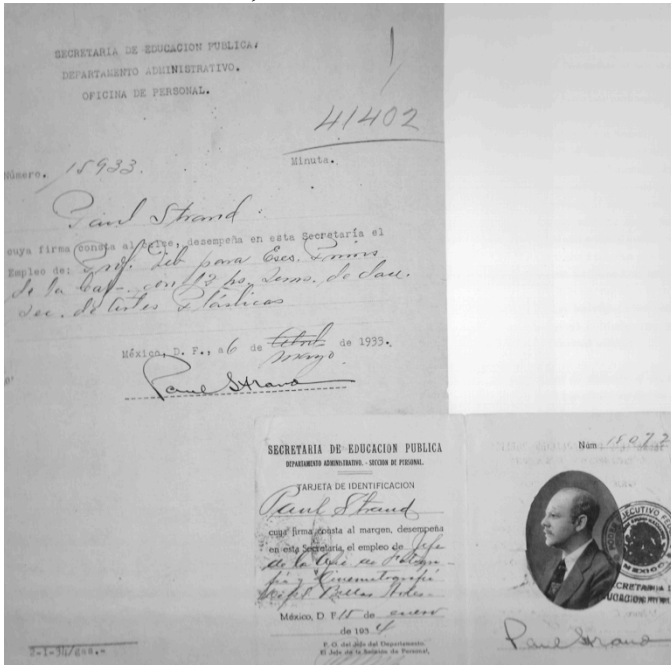 SECRETARIA DE EDUCACION PUBLICA.
DEPARTAMENTO ADMINISTRATIVO.
OFICINA DE PERSONAL.
41402
Número. 15933.
Minuta.
Paul Strand.
cuya firma consta al calce, desempeña en esta Secretaría el
Empleo de: Prof. Dib para Escs. Prims
de la Cap. con 12 hs. Sems. de clase.
Sec. de Artes Plásticas
México, D. F., a 6 de abril mayo de 1933.
Paul Strand
SECRETARIA DE EDUCACION PUBLICA
DEPARTAMENTO ADMINISTRATIVO. - SECCION DE PERSONAL.
TARJETA DE IDENTIFICACION
Paul Strand
cuya firma consta al margen, desempeña
en esta Secretaría, el empleo de Jefe
de la Ofic. de Fotogra-
fía y Cinematografí
Bellas Artes
México, D. F. 15 de enero
de 1934
P. O. del Jefe del Departamento.
El Jefe de la Sección de Personal,
Núm 15072
PODER EJECUTIVO
MEXICO
Paul Strand